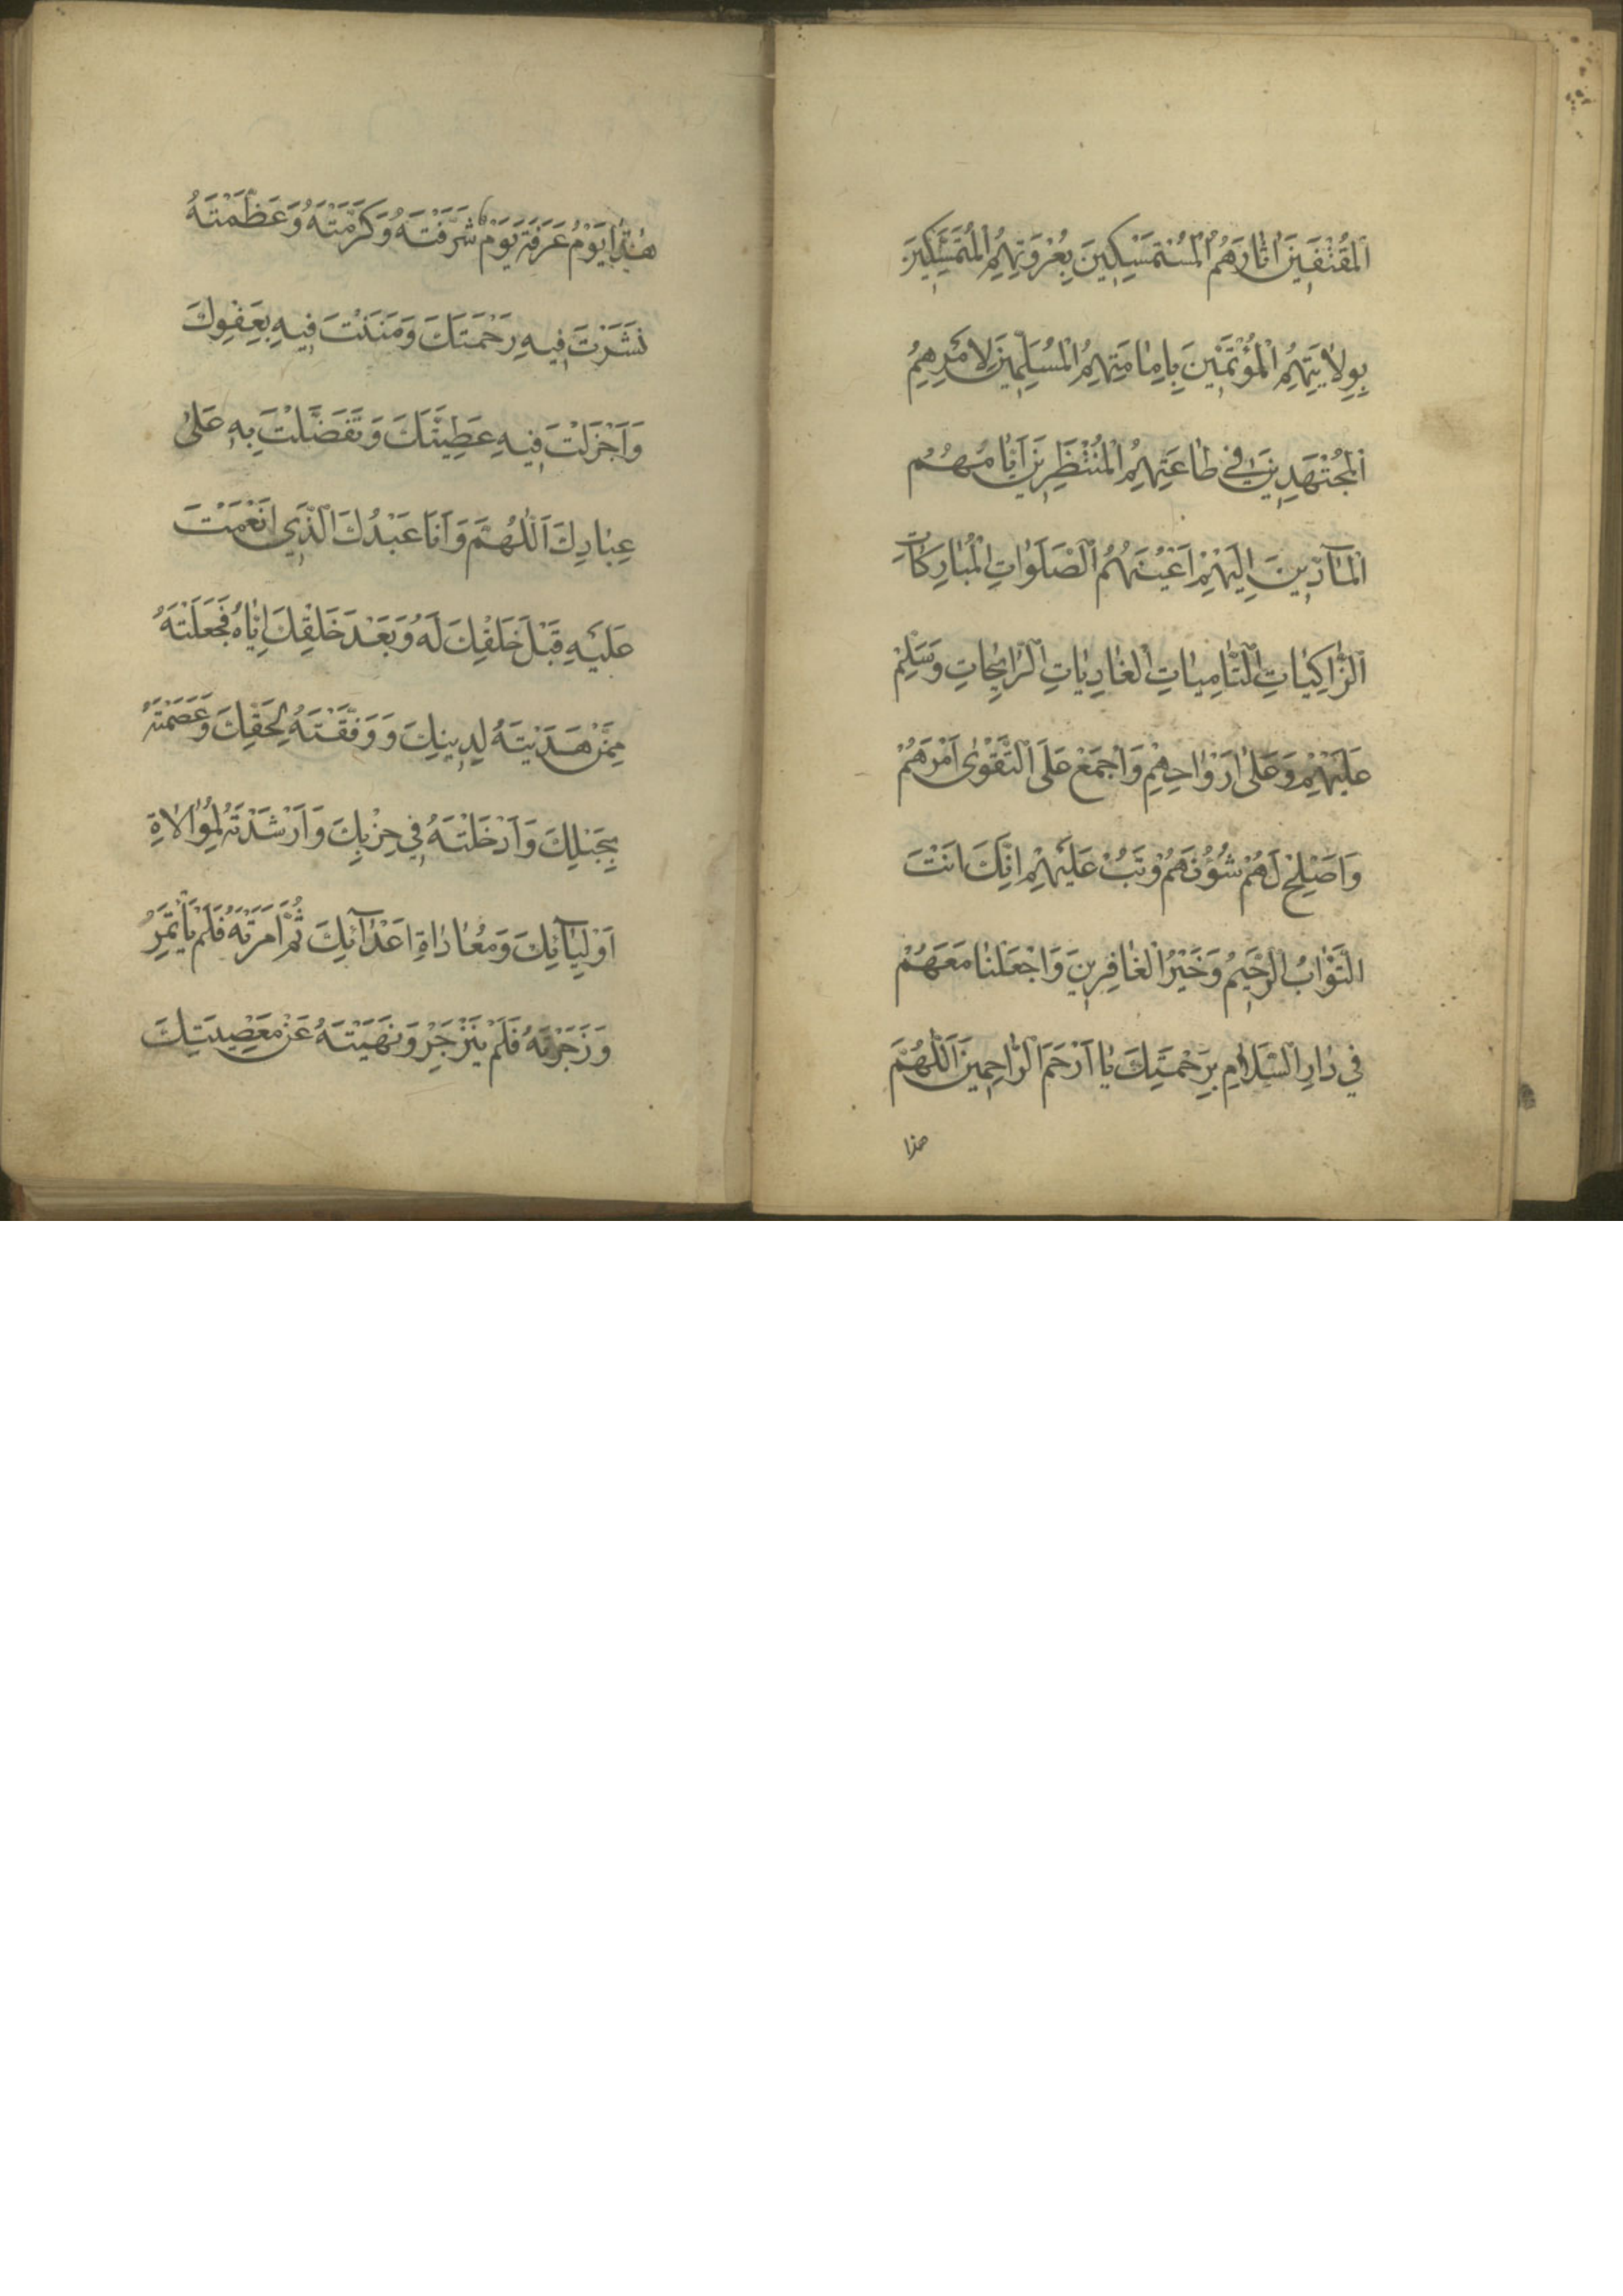 اَلْمُقْتَفِينَ اٰثَارَهُمُ الْمُسْتَمْسِكِينَ بِعُرْوَتِهِمُ الْمُتَمَسِّكِينَ
بِوِلَايَتِهِمُ الْمُؤْتَمِّينَ بِاِمَامَتِهِمُ الْمُسَلِّمِينَ لِاَمْرِهِمُ
الْمُجْتَهِدِينَ فِي طَاعَتِهِمُ الْمُنْتَظِرِينَ اَيَّامَهُمُ
الْمَآدِّينَ اِلَيْهِمْ اَعْيُنَهُمُ الصَّلَوَاتِ الْمُبَارَكَاتِ
الزَّاكِيَاتِ النَّامِيَاتِ الْغَادِيَاتِ الرَّائِحَاتِ وَسَلِّمْ
عَلَيْهِمْ وَعَلىٰ اَرْوَاحِهِمْ وَاجْمَعْ عَلَى التَّقْوىٰ اَمْرَهُمْ
وَاَصْلِحْ لَهُمْ شُؤُنَهُمْ وَتُبْ عَلَيْهِمْ اِنَّكَ اَنْتَ
التَّوَّابُ الرَّحِيمُ وَخَيْرُ الْغَافِرِينَ وَاجْعَلْنَا مَعَهُمْ
فِي دَارِ السَّلَامِ بِرَحْمَتِكَ يَا اَرْحَمَ الرَّاحِمِينَ اَللّٰهُمَّ
هذا
هٰذَا يَوْمُ عَرَفَةَ يَوْمٌ شَرَّفْتَهُ وَكَرَّمْتَهُ وَعَظَّمْتَهُ
نَشَرْتَ فِيهِ رَحْمَتَكَ وَمَنَنْتَ فِيهِ بِعَفْوِكَ
وَاَجْزَلْتَ فِيهِ عَطِيَّتَكَ وَتَفَضَّلْتَ بِهِ عَلىٰ
عِبَادِكَ اَللّٰهُمَّ وَاَنَا عَبْدُكَ الَّذِي اَنْعَمْتَ
عَلَيْهِ قَبْلَ خَلْقِكَ لَهُ وَبَعْدَ خَلْقِكَ اِيَّاهُ فَجَعَلْتَهُ
مِمَّنْ هَدَيْتَهُ لِدِينِكَ وَوَفَّقْتَهُ لِحَقِّكَ وَعَصَمْتَهُ
بِحَبْلِكَ وَاَدْخَلْتَهُ فِي حِزْبِكَ وَاَرْشَدْتَهُ لِمُوَالَاةِ
اَوْلِيَآئِكَ وَمُعَادَاةِ اَعْدَآئِكَ ثُمَّ اَمَرْتَهُ فَلَمْ يَأْتَمِرْ
وَزَجَرْتَهُ فَلَمْ يَنْزَجِرْ وَنَهَيْتَهُ عَنْ مَعْصِيَتِكَ